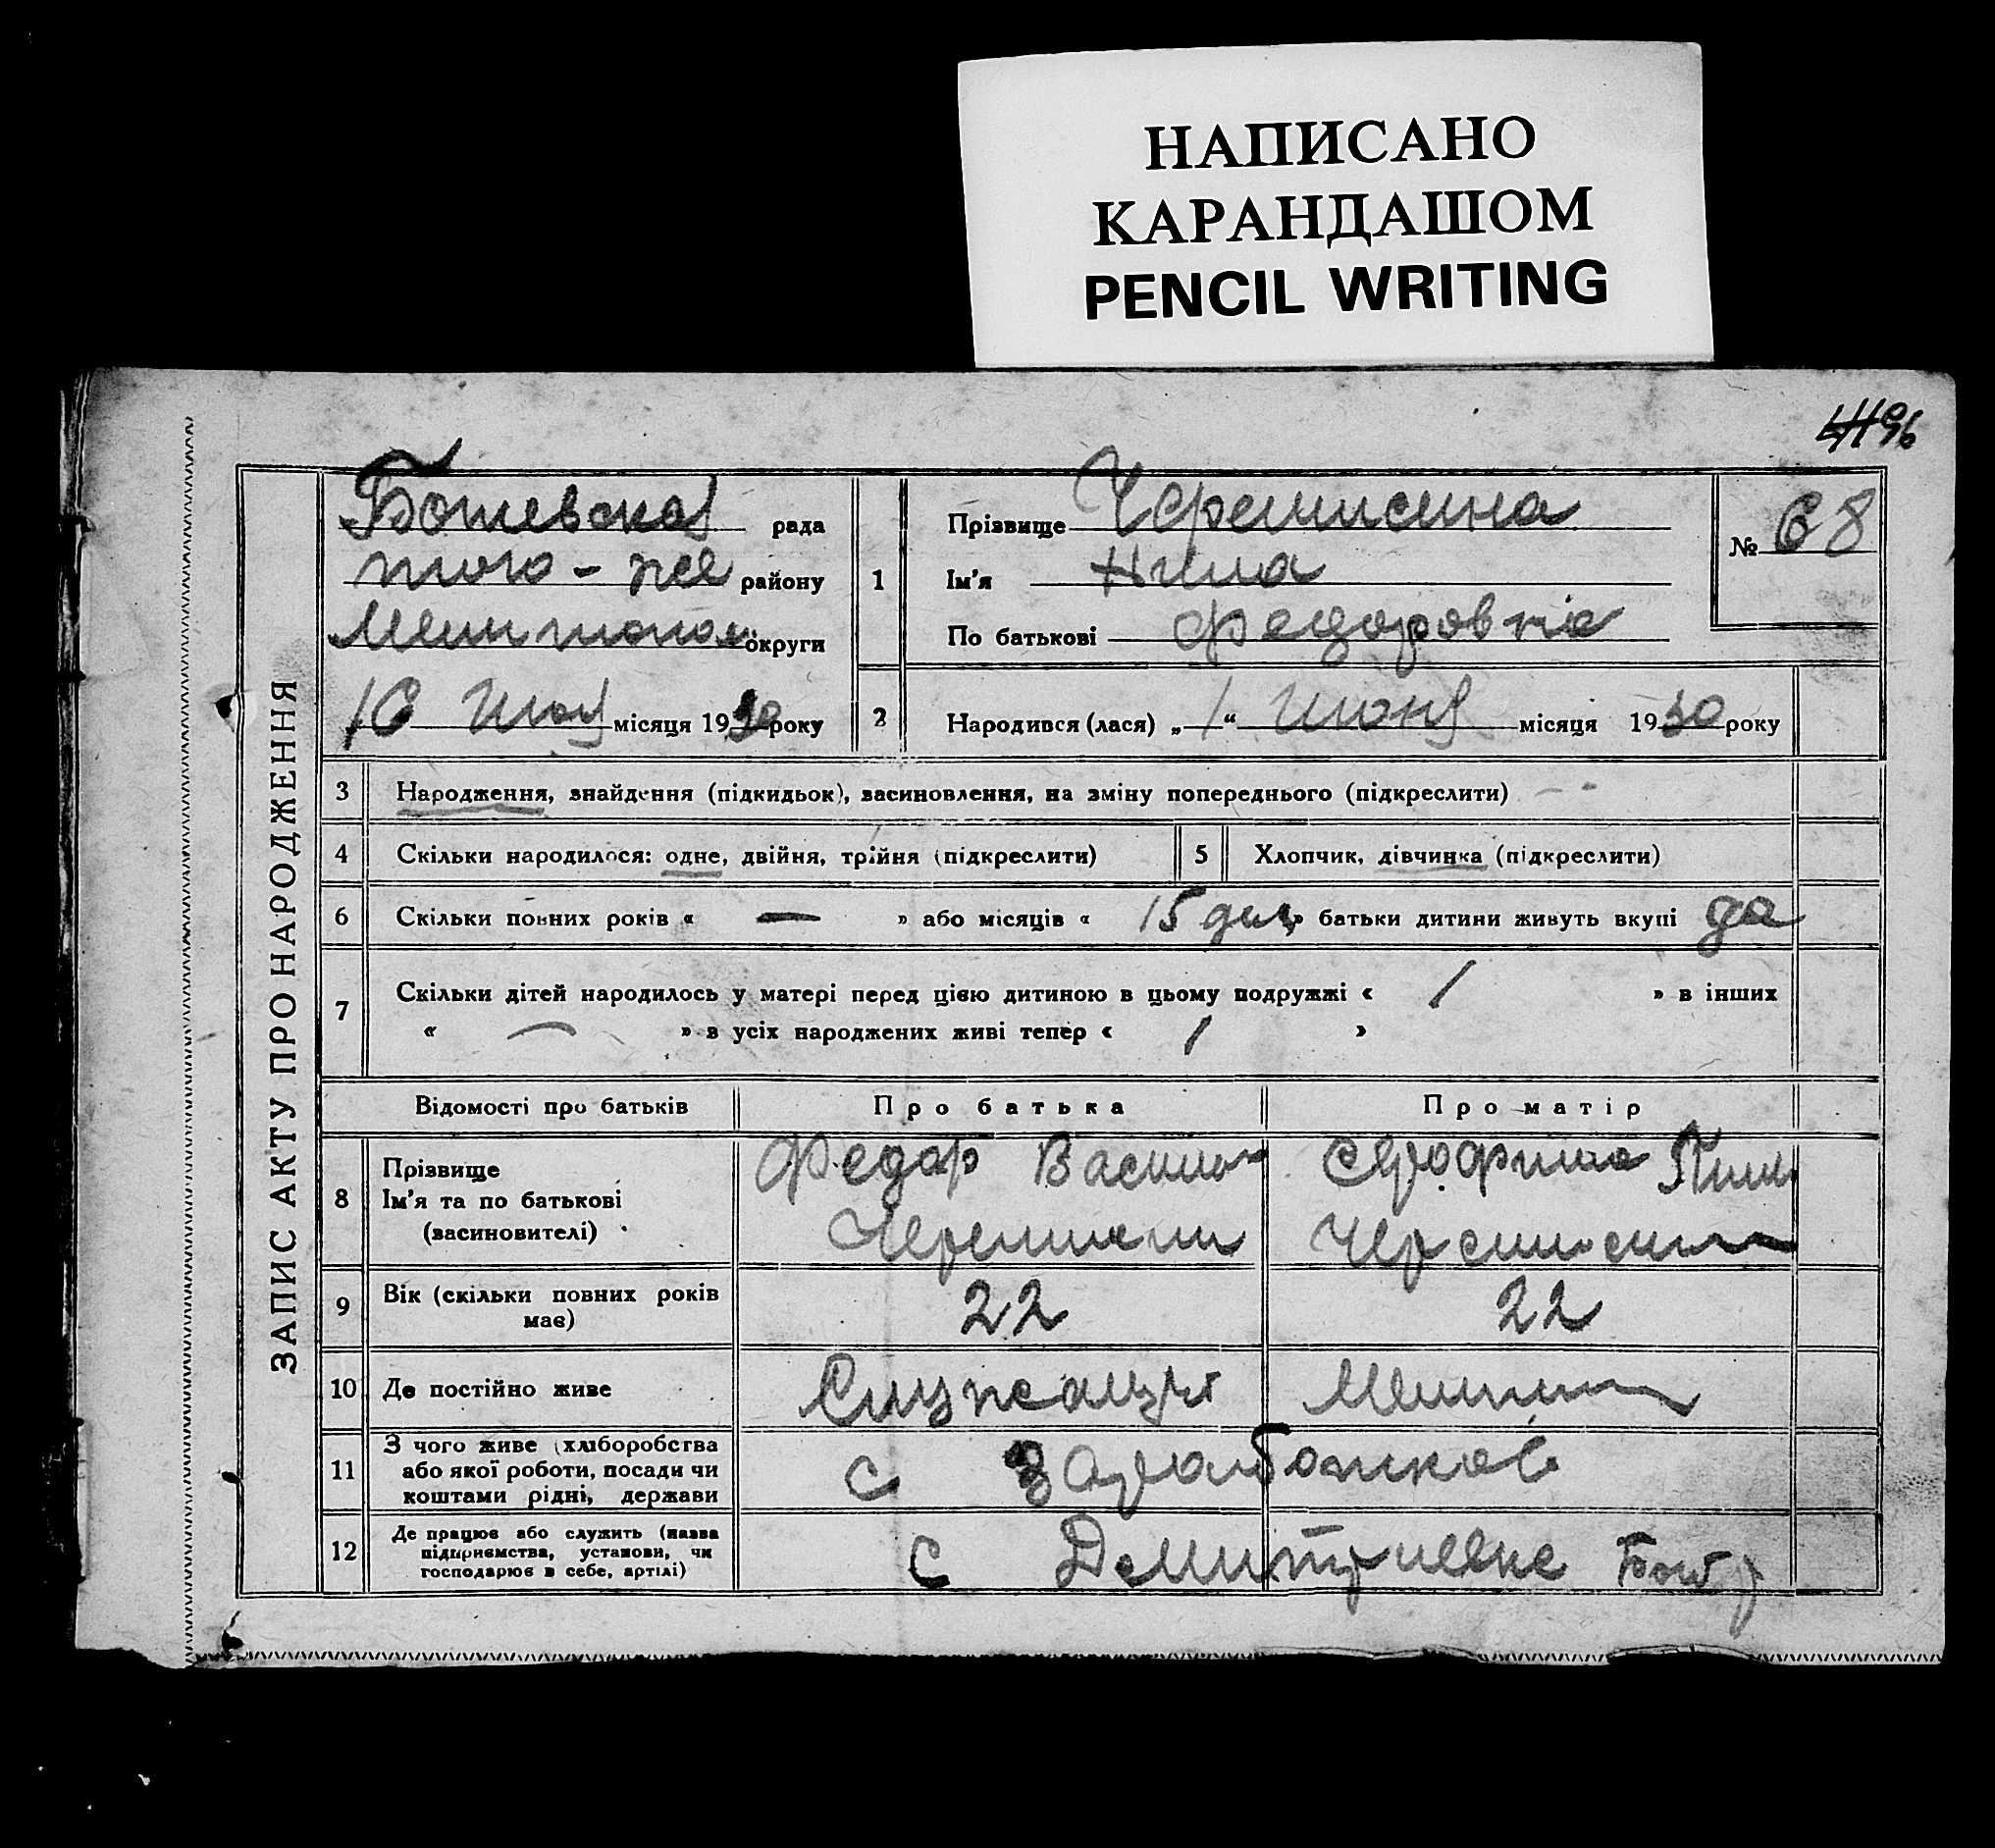 НАПИСАНО
КАРАНДАШОМ
PENCIL WRITING
96
ЗАПИС АКТУ ПРО НАРОДЖЕННЯ
рада
того-же району
округи
16 місяця 1930 року
1
Прізвище Черемисина
Ім'я Нина
По батькові Федоровна
№ 68
2
Народився (лася) „ 1 “ Июня місяця 1930 року
3 Народження, знайдення (підкидьок), васиновлення, на зміну попереднього (підкреслити)
4 Скільки народилося: одне, двійня, трійня (підкреслити)
5 Хлопчик, дівчинка (підкреслити)
6 Скільки повних років « — » або місяців « 15 » батьки дитини живуть вкупі да
7 Скільки дітей народилось у матері перед цією дитиною в цьому подружжі « 1 » в інших
« — » в усіх народжених живі тепер « 1 »
Відомості про батьків Про батька Про матір
8 Прізвище
Ім'я та по батькові
(васиновителі)
Федор
Черемисин
9 Вік (скільки повних років має) 22 22
10 Де постійно живе
11 З чого живе (хліборобства
або якої роботи, посади чи
коштами рідні, держави
с заработков
12 Де працює або служить (назва
підприємства, установи, чи
господарює в себе, артілі)
с